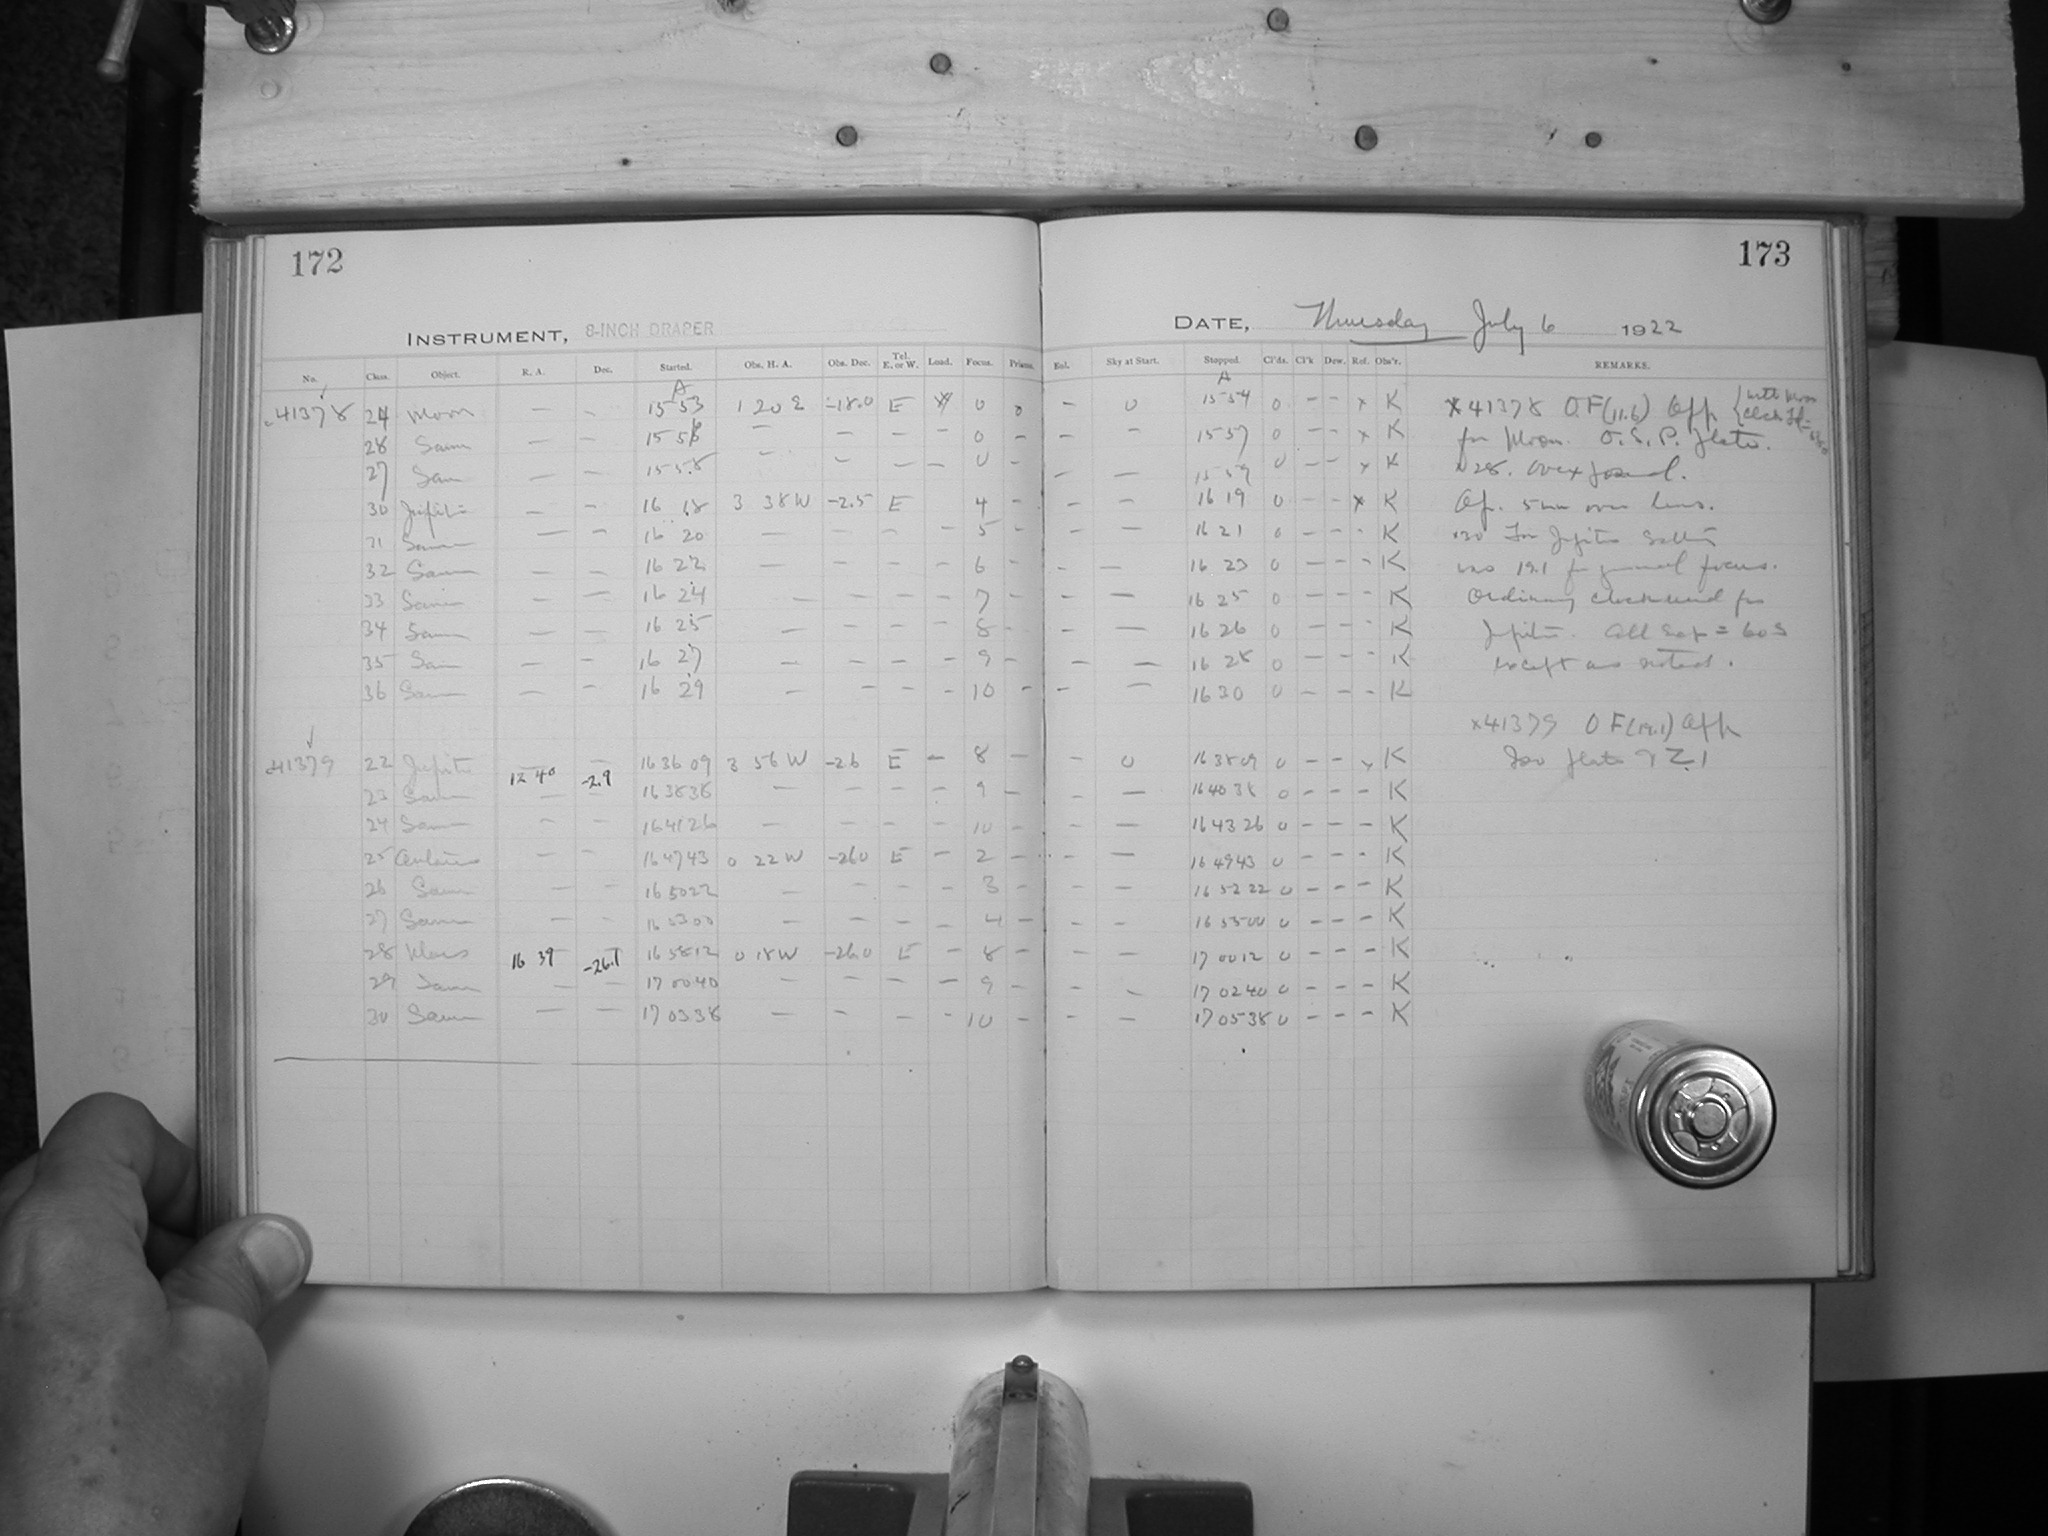 172
INSTRUMENT, 8-INCH DRAPER
No. Class. Object. R. A. Dec. Started. Obs. H. A. Obs. Dec. Tel. E. or W. Load. Focus. Prisms.
A
41378 24 Moon — - 15 53 1 20 E -18.0 E 0 0
28 Same — — 15 56 — — — 0 -
27 Same — — 15 58 — — — - 0 -
30 Jupiter — — 16 18 3 38 W -2.5 E 4 -
31 Same — - 16 20 — — — - 5 -
32 Same — — 16 22 — — — - 6 -
33 Same — — 16 24 — — — - 7 -
34 Same — — 16 25 — — — - 8 -
35 Same — - 16 27 — — — - 9 -
36 Same — - 16 29 — — — - 10 -
41379 22 Jupiter 12 40 -2.9 16 36 09 3 56 W -2.6 E - 8 —
23 Same — — 16 38 38 — — — - 9 -
24 Same - - 16 41 26 — — — - 10 -
25 Antares — — 16 47 43 0 22 W -26.0 E - 2 -
26 Same — — 16 50 22 — — — - 3 -
27 Same — - 16 53 00 — — — - 4 -
28 Mars 16 39 -26.1 16 58 12 0 18 W -26.0 E - 8 -
29 Same — — 17 00 40 — — — - 9 -
30 Same — — 17 03 38 — - — - 10 -
173
DATE, Thursday July 6 1922
Enl. Sky at Start. Stopped. Cl'ds. Cl'k Dew. Ref. Obs'r. REMARKS.
A
- 0 15 54 0 - - x K x 41378 OF(11.6) Aff. with Moon
— - 15 57 0 - - x K for Moon. O.S.P. Plate.
- — 15 59 0 - - x K 28. Overexposed.
- - 16 19 0 - - x K Ap. 5 mm over lens.
- — 16 21 0 - - - K 30 For Jupiter Setting
- — 16 23 0 - - - K was 19.1 for journal focus.
- — 16 25 0 - - - K Ordinary clock used for
- — 16 26 0 - - - K Jupiter. All Exp = 60s
- — 16 28 0 - - - K except as noted.
- — 16 30 0 - - - K
x 41379 OF(19.1) Aff
- 0 16 38 09 0 - - x K Iso plate
- — 16 40 38 0 - - - K
- — 16 43 26 0 - - - K
- — 16 49 43 0 - - - K
- — 16 52 22 0 - - - K
- - 16 55 00 0 - - - K
- — 17 00 12 0 - - - K
- - 17 02 40 0 - - - K
- — 17 05 38 0 - - - K